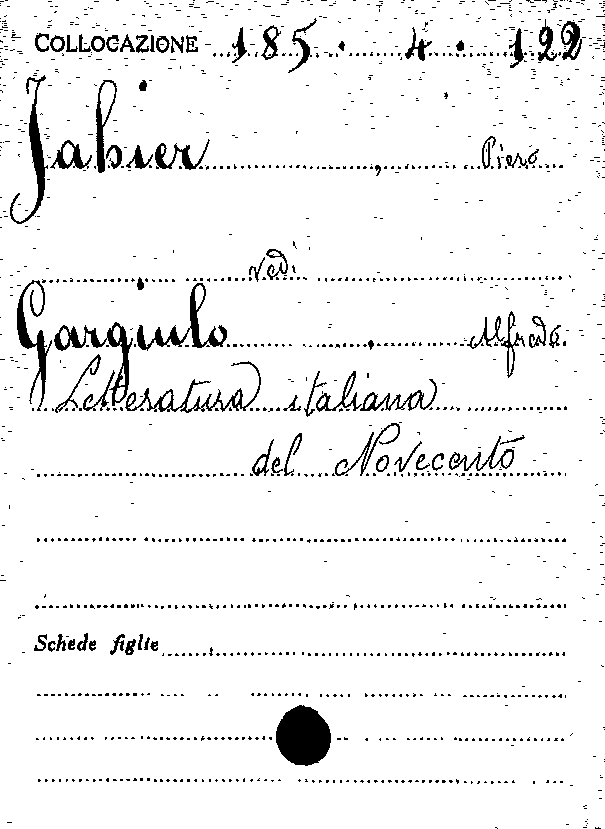 COLLOCAZIONE 185. 4. 122
Jahier, Piero
vedi
Gargiulo, Alfredo.
Letteratura italiana
del Novecento
Schede figlie